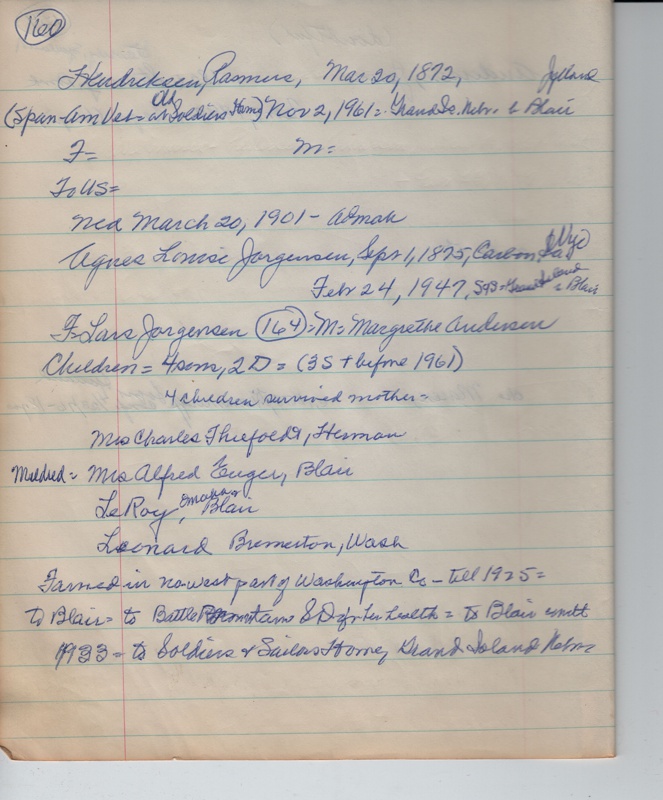 160
Hendricksen, Rasmus, Mar 20, 1872, Jylland
(Span-Am Vet = at Soldiers Home) Nov 2, 1961 = Grand Is. Nebr. b Blair
F= M=
To US=
Md March 20, 1901 -
Agnes Louise Jorgensen, Sept 1, 1875, Carbon,
Feb 24, 1947, Grand Island b Blair
F= Lars Jorgensen (164) = M= Margrethe Andersen
Children = 4 sons, 2 D = (3 S + before 1961)
4 children survived mother =
Mrs Charles Thiefoldt, Herman
Mildred = Mrs Alfred Euger, Blair
LeRoy, Omaha, Blair
Leonard Bremerton, Wash
Farmed in no-west part of Washington Co - till 1925 =
to Blair = to Battle Mountains S D for her health = to Blair until
1933 = to Soldiers & Sailors Home, Grand Island Nebr